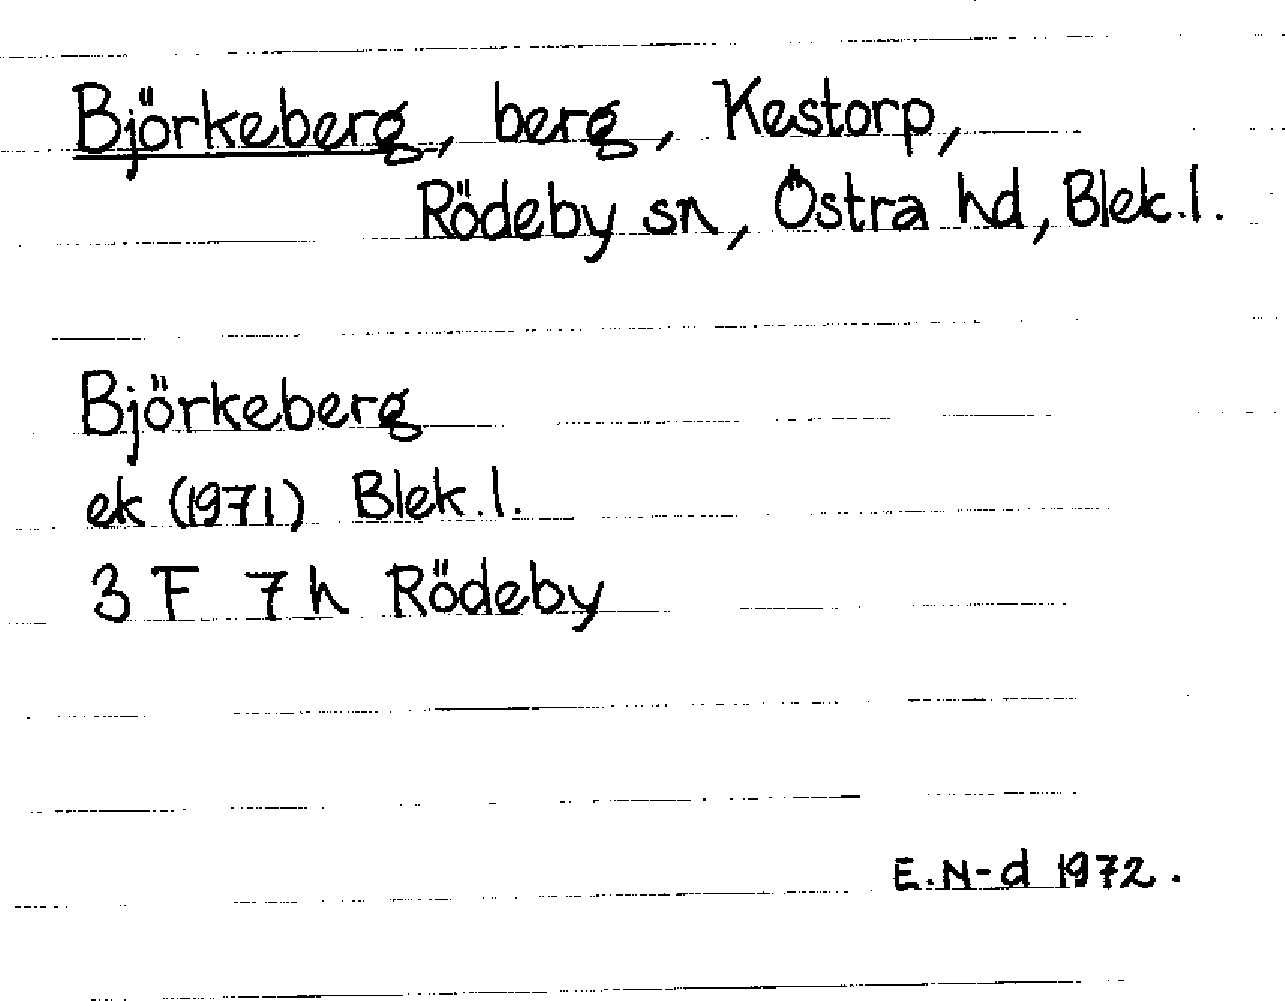 Björkeberg, berg, Kestorp,
Rödeby sn, Östra hd, Blek.l.
Björkeberg
ek (1971) Blek.l.
3 F 7 h Rödeby
E.N-d 1972.